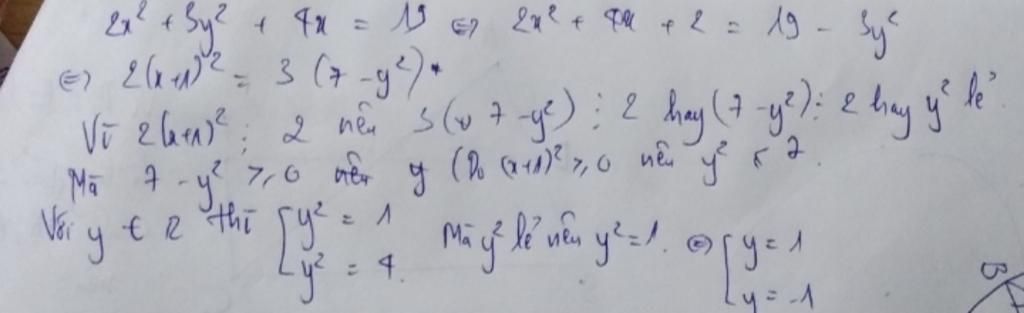 2x² + 3y² + 4x = 19 ⇔ 2x² + 4x + 2 = 19 - 3y²
⇔ 2(x+1)² = 3 (7 - y²)*
Vì 2(x+1)² ⋮ 2 nên 3(7 - y²) ⋮ 2 hay (7 - y²) ⋮ 2 hay y² lẻ.
Mà 7 - y² ≥ 0 nên y (Do (x+1)² ≥ 0 nên y² ≤ 7.
Với y ∈ Z thì [ y² = 1 Mà y² lẻ nên y² = 1. ⇔ [ y = 1
y² = 4. y = -1
B